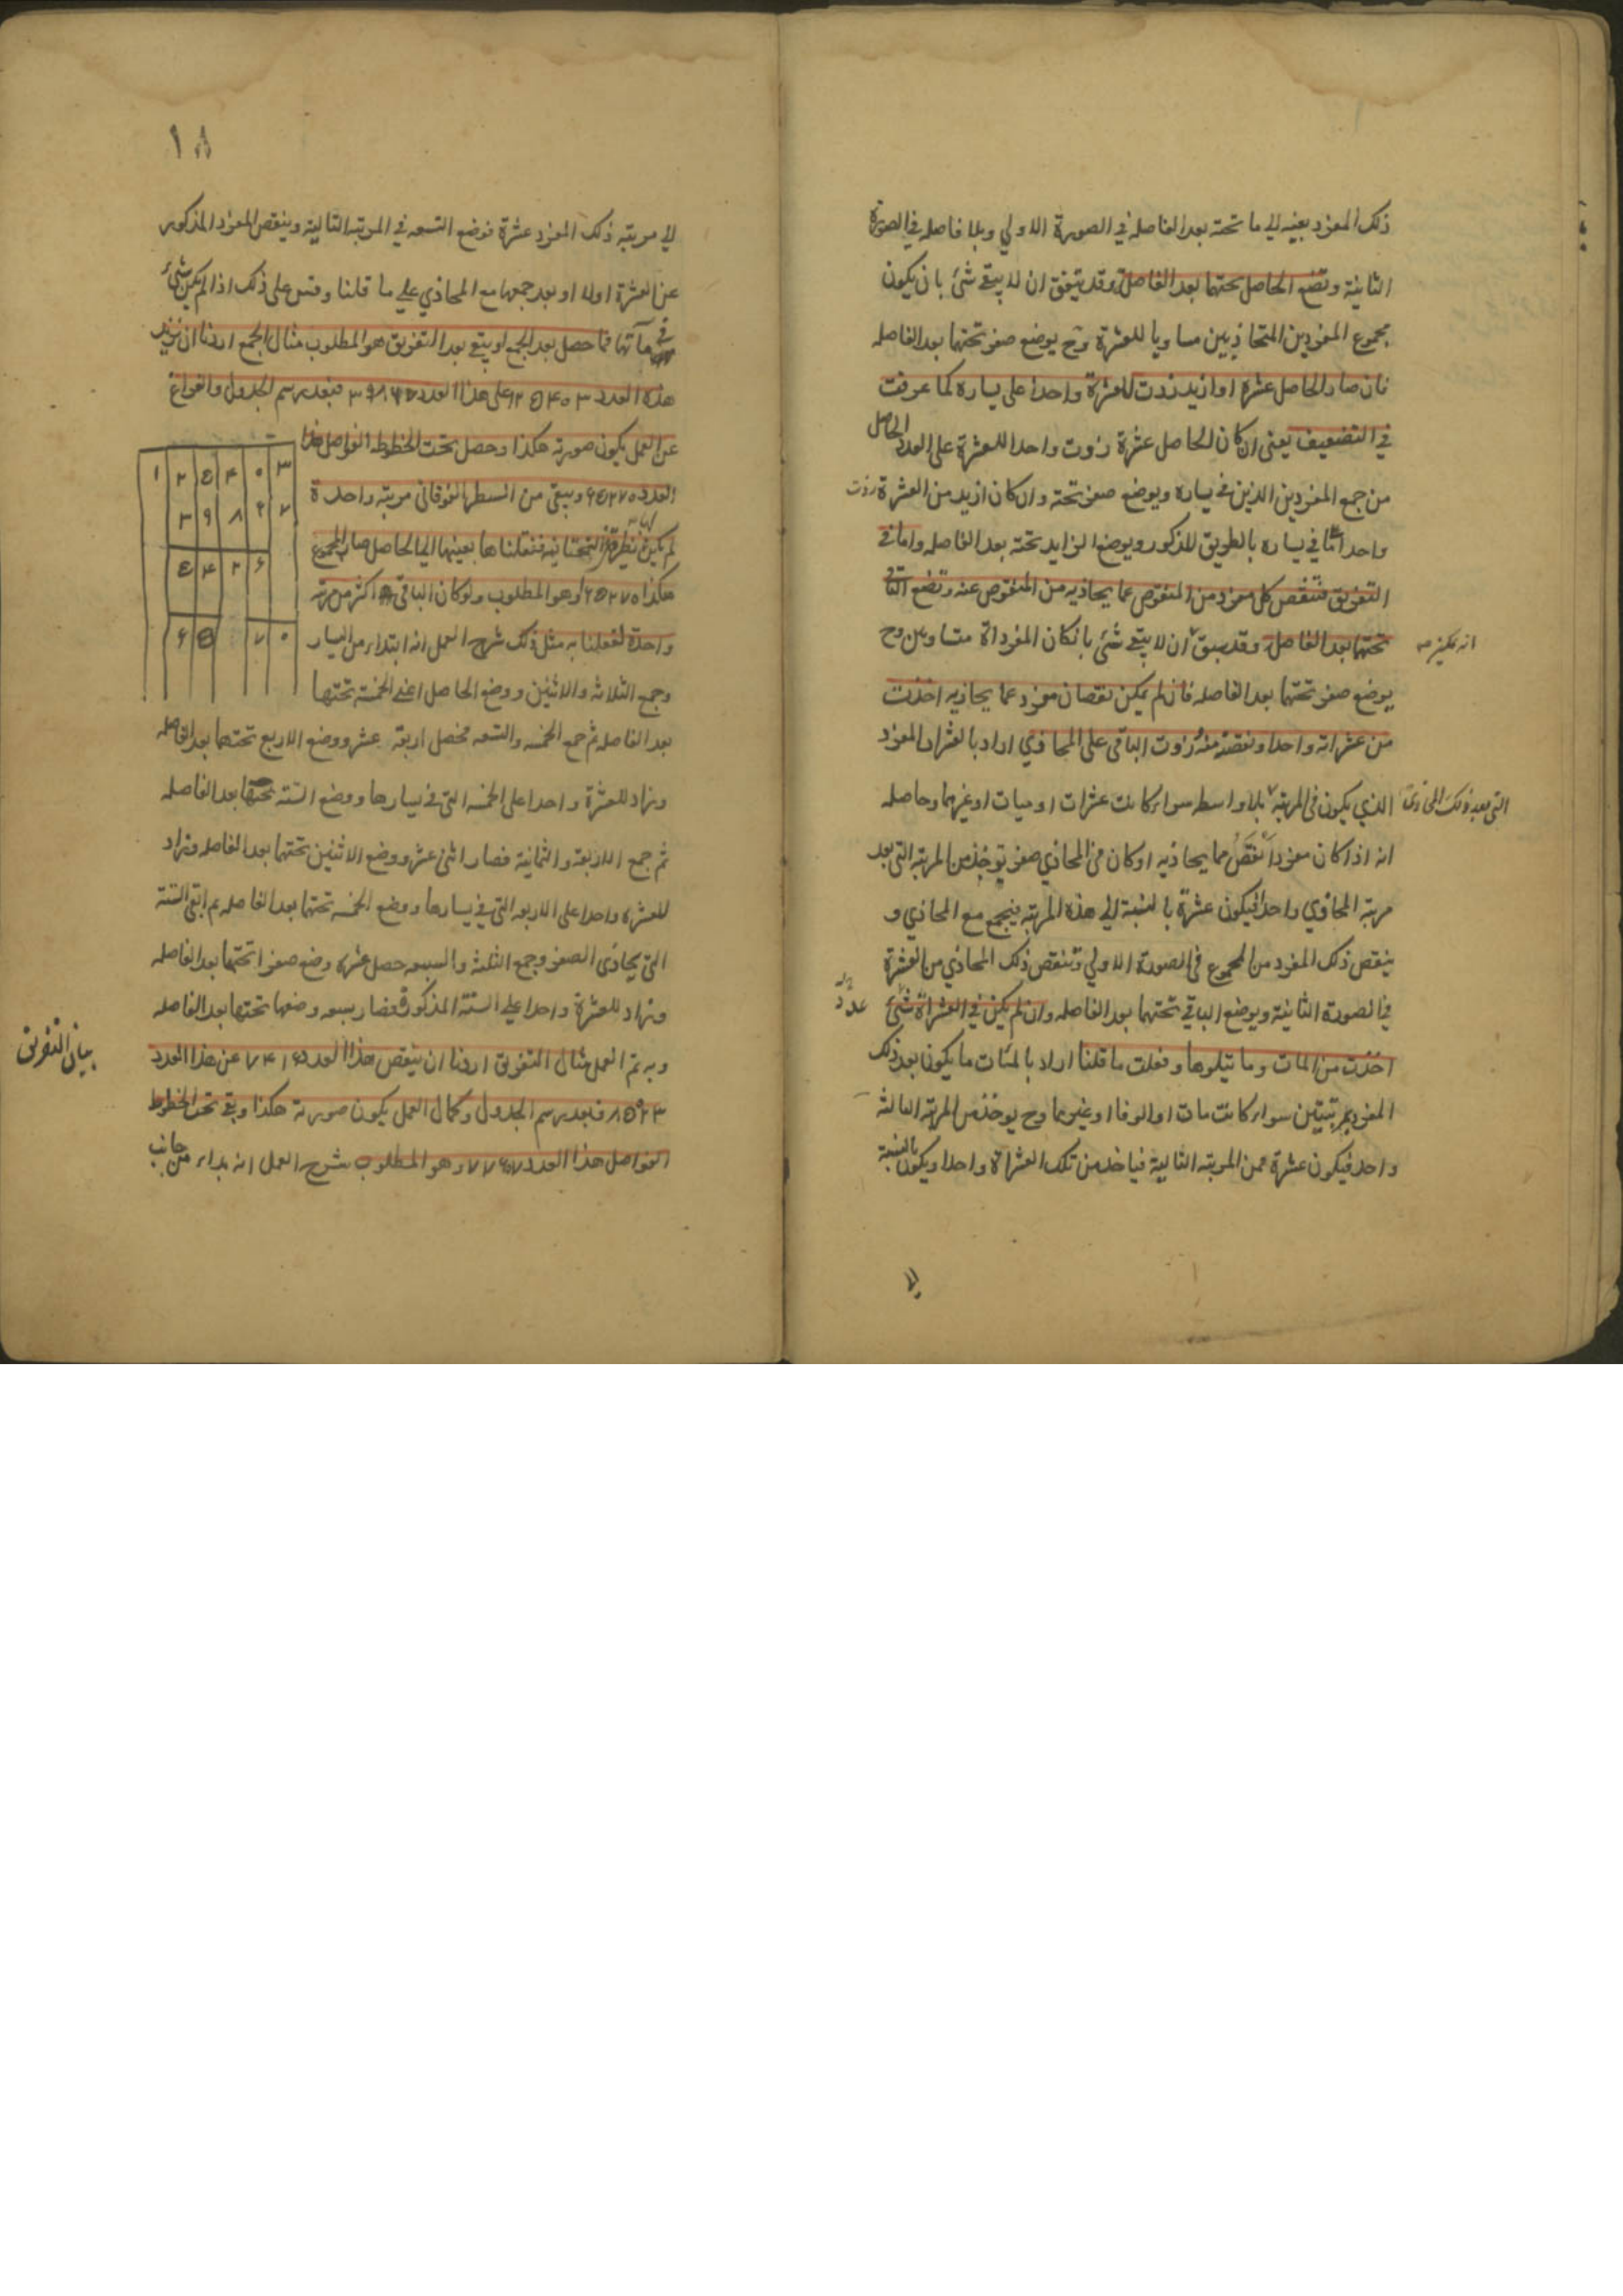 ذلك المفرد بعينه الى ما تحته بعد الفاصله في الصورة الاولي وبلا فاصله في الصورة
الثانية وتضع الحاصل تحتها بعد الفاصلة وقد يتفق ان لا يبقى شئ بان يكون
مجموع المفردين المتحاذيين مساويا للعشرة وح يوضع صفر تحتهما بعد الفاصله
فان صار الحاصل عشرة او ازيد زدت للعشرة واحدا على يساره كما عرفت
في التضعيف يعني ان كان الحاصل عشرة زدت واحدا للعشرة على العدد الحاصل
من جمع المفردين الذين في يساره ويوضع صفر تحته وان كان ازيد من العشرة زدت
واحدا في يساره بالطريق المذكور ويوضع الزايد تحته بعد الفاصله واما في
التفريق فتنقص كل مفرد من المنقوص عما يحاذيه من المنقوص عنه وتضع الباقي
تحتهما بعد الفاصل وقد سبق ان لا يبقى شئ بان كان المفرداة متساويين وح
انه يمكن
يوضع صفر تحتهما بعد الفاصله فان لم يمكن نقصان مفرد عما يحاذيه اخذت
من عشراته واحدا ونقصته منه زدت الباقي على المحاذي اراد بالعشرات المفرد
الذي يكون في المرتبة بلا واسطه سواء كانت عشرات او ميات او غيرهما وحاصله
التي بعد ذلك المحاذي
انه اذا كان مفردا نقص مما يحاذيه او كان في المحاذي صفر يؤخذ من المرتبه التي بعد
مرتبة المحاذي واحدا فيكون عشرة بالنسبة الى هذه المرتبه فيجمع مع المحاذي و
ينقص ذلك المفرد من المجموع في الصورة الاولي وينقص ذلك المحاذي من العشرة
في الصورة الثانية ويوضع الباقي تحتهما بعد الفاصله وان لم يكن في العشراة شئ
عدد
اخذت من المات وما يتلوها وفعلت ما قلنا اراد بالمئات ما يكون بعد ذلك
المفرد بمرتبتين سواء كانت مات او الوفا او غيرهما وح يوخذ من المرتبة الثالثة
واحد فيكون عشرة من المرتبه الثانية فياخذ من تلك العشراة واحدا ويكون بالنسبة
الى
١٨
الى مرتبه ذلك المفرد عشرة فوضع التسعه في المرتبه التالية وينقص المفرد المذكور
عن العشرة اولا او بعد جمعها مع المحاذي على ما قلنا وقس على ذلك اذا لم يكن شئ
في مآتها فما حصل بعد الجمع او يبقى بعد التفريق هو المطلوب مثال الجمع اردنا ان نزيد
هذه العدد ١٢٥٤٠٣ على هذا العدد ٣٩٨٦٧ فبعد رسم الجدول والفراغ
عن العمل يكون صورته هكذا وحصل تحت الخطوط الفواصل هذا
العدد ٦٥٢٧٠ ويبقى من السطر الفوقاني مرتبه واحدة
لم يكن نظيرة في التحتانية فنقلناها بعينها الى الحاصل صار المجموع
هكذا ١٦٥٢٧٠ وهو المطلوب ولو كان الباقي اكثر من مرتبه
واحدة لفعلنا به مثل ذلك شرح العمل انه ابتداء من اليسار
وجمع الثلاثه والاثنين ووضع الحاصل اعني الخمسة تحتها
بعد الفاصله ثم جمع الخمسه والتسعه فحصل اربعة عشر ووضع الاربع تحتهما بعد الفاصله
وزاد للعشرة واحدا على الخمسه التي في يسارها ووضع السته تحتها بعد الفاصله
ثم جمع الاربعة والثمانية فصار اثنى عشر ووضع الاثنين تحتهما بعد الفاصله وزاد
للعشره واحدا على الاربعه التي في يسارها ووضع الخمسه تحتها بعد الفاصله ثم ابقى الستة
التي يحاذي الصفر وجمع الثلثة والسبعه حصل عشره وضع صفرا تحتهما بعد الفاصله
وزاد للعشرة واحدا على الستة المذكورة فصار سبعه وضعها تحتها بعد الفاصله
وبه تم العمل مثال التفريق اردنا ان ينقص هذا العدد ٧٤١٦ عن هذا العدد
بيان التفريق
٨٥٢٣ فبعد رسم الجدول وكمال العمل يكون صورته هكذا وبقى تحت الخطوط
الفواصل هذا العدد وهو المطلوب شرح العمل انه بداء من جانب
١ ٢ ٥ ٤ ٠ ٣
٣ ٩ ٨ ٦ ٧
٥ ٤ ٢ ٦
٦ ٥ ٧ ٠